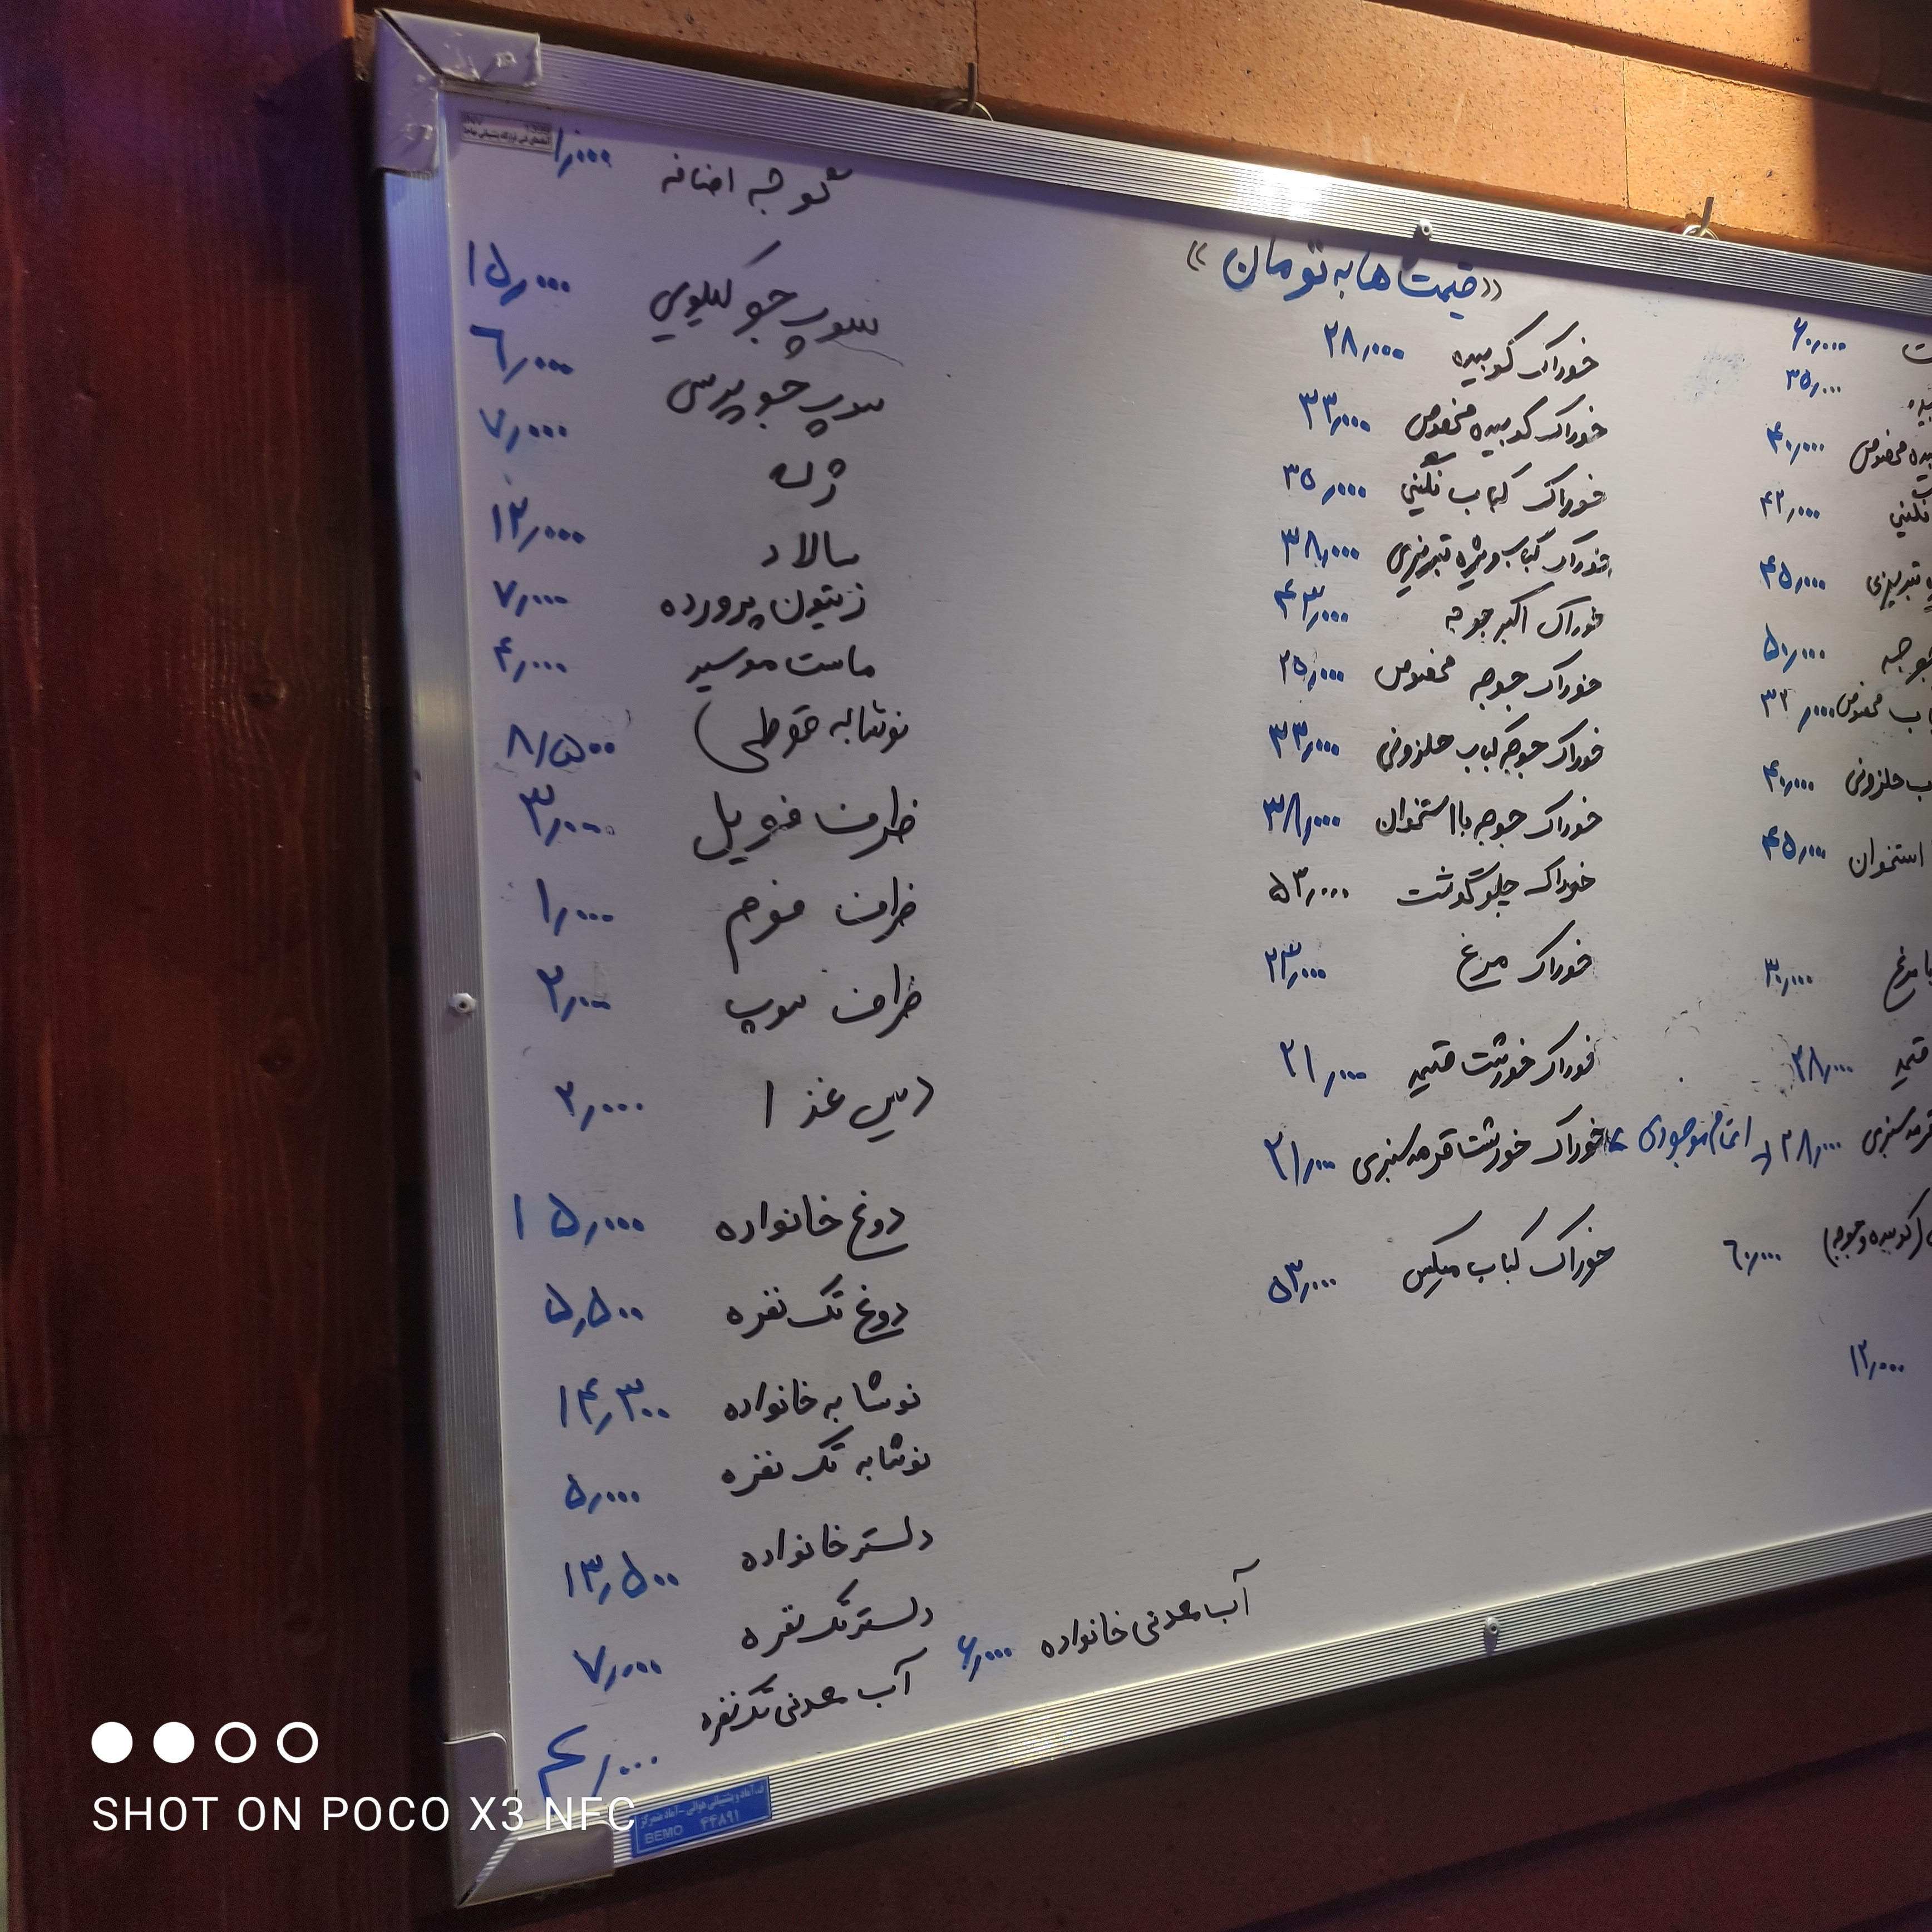 «قیمت ها به تومان»
۶۰,۰۰۰
۳۵,۰۰۰
مخصوص ۴۰,۰۰۰
نگینی ۴۲,۰۰۰
تبریزی ۴۵,۰۰۰
۵۰,۰۰۰
مخصوص ۳۲,۰۰۰
حلزونی ۴۰,۰۰۰
استخوان ۴۵,۰۰۰
با مرغ ۳۰,۰۰۰
قیمه ۲۸,۰۰۰
سبزی ۲۸,۰۰۰ اتمام موجودی
(کوبیده و جوجه) ۶۰,۰۰۰
۱۲,۰۰۰
خوراک کوبیده ۲۸,۰۰۰
خوراک کوبیده مخصوص ۳۳,۰۰۰
خوراک کباب نگینی ۳۵,۰۰۰
خوراک کباب ویژه تبریزی ۳۸,۰۰۰
خوراک اکبر جوجه ۴۳,۰۰۰
خوراک جوجه مخصوص ۲۵,۰۰۰
خوراک جوجه کباب حلزونی ۳۳,۰۰۰
خوراک جوجه با استخوان ۳۸,۰۰۰
خوراک چلو گوشت ۵۳,۰۰۰
خوراک مرغ ۲۳,۰۰۰
خوراک خورشت قیمه ۲۱,۰۰۰
خوراک خورشت قرمه سبزی ۲۱,۰۰۰
خوراک کباب میکس ۵۳,۰۰۰
گوجه اضافه ۱,۰۰۰
سوپ جو کیلویی ۱۵,۰۰۰
سوپ جو پرسی ۶,۰۰۰
ژله ۷,۰۰۰
سالاد ۱۲,۰۰۰
زیتون پرورده ۷,۰۰۰
ماست موسیر ۴,۰۰۰
نوشابه قوطی ۸,۵۰۰
ظرف فویل ۳,۰۰۰
ظرف فوم ۱,۰۰۰
ظرف سوپ ۲,۰۰۰
دیس غذا ۲,۰۰۰
دوغ خانواده ۱۵,۰۰۰
دوغ تک نفره ۵,۵۰۰
نوشابه خانواده ۱۴,۳۰۰
نوشابه تک نفره ۵,۰۰۰
دلستر خانواده ۱۳,۵۰۰
دلستر تک نفره ۷,۰۰۰
آب معدنی خانواده ۶,۰۰۰
آب معدنی تک نفره ۴,۰۰۰
BEMO ۴۴۸۹۱
SHOT ON POCO X3 NFC